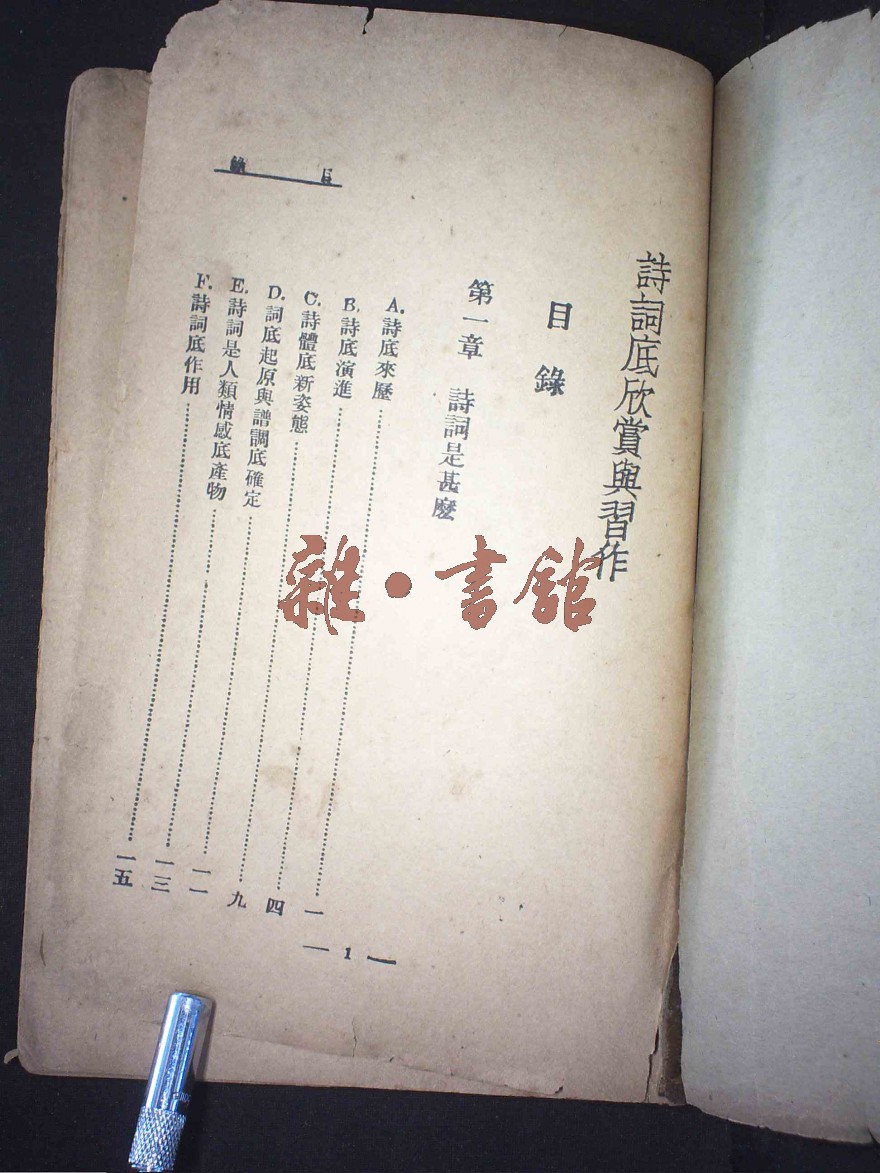 詩詞底欣賞與習作
目錄
第一章 詩詞是甚麼
A. 詩底來歷……一
B. 詩底演進……四
C. 詩體底新姿態……九
D. 詞底起原與譜調底確定……一一
E. 詩詞是人類情感底產物……一三
F. 詩詞底作用……一五
目錄
— 1 —
雜·書館